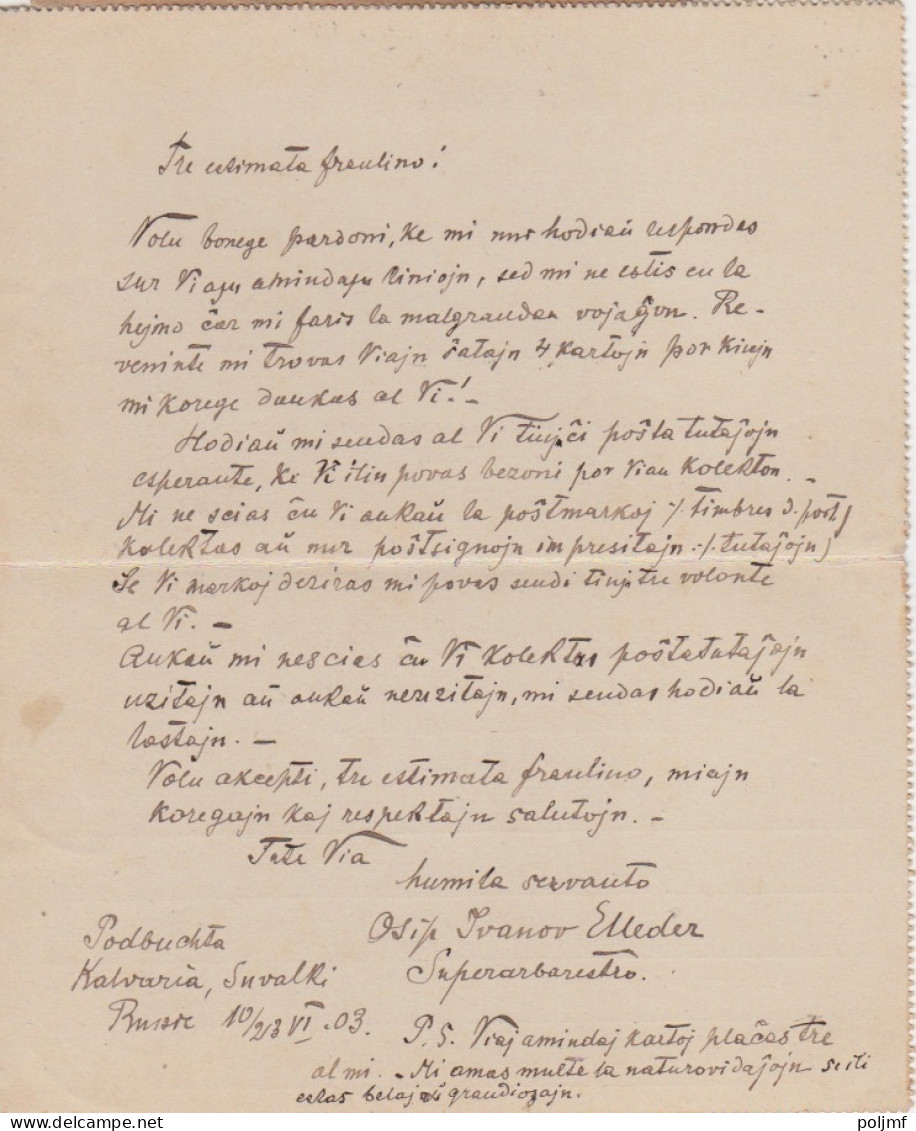 Tre estimata fraulino!
Volu bonege pardoni, ke mi nur hodiaŭ respondas
sur Viajn amindajn liniojn, sed mi ne estis en la
hejmo ĉar mi faris la malgrandan vojaĝon. Re-
veninte mi trovas Viajn ŝatajn 4 kartojn por kiujn
mi korege dankas al Vi! -
Hodiaŭ mi sendas al Vi poŝtatutaĵojn
esperante, ke Vi ilin povas bezoni por Vian kolekton. -
Mi ne scias ĉu Vi ankaŭ la poŝtmarkoj ·/. timbres d. post)
kolektas aŭ nur poŝtsignojn impresitajn ·/. tutaĵojn)
Se Vi markoj deziras mi povas sendi tre volonte
al Vi. -
Ankaŭ mi nescias ĉu Vi kolektas poŝtatutaĵojn
uzitajn aŭ ankaŭ neuzitajn, mi sendas hodiaŭ la
lastajn. -
Volu akcepti, tre estimata fraulino, miajn
koregajn kaj respektajn salutojn. -
Tute Via
humila servanto
Osip Ivanov Elleder
Superarbarestro.
Podbuchta
Kalvaria, Suvalki
Russie 10/23 VI .03.
P.S. Viaj amindaj kartoj plaĉas tre
al mi. - Mi amas multe la naturovidaĵojn se ili
estas belaj grandiozajn.